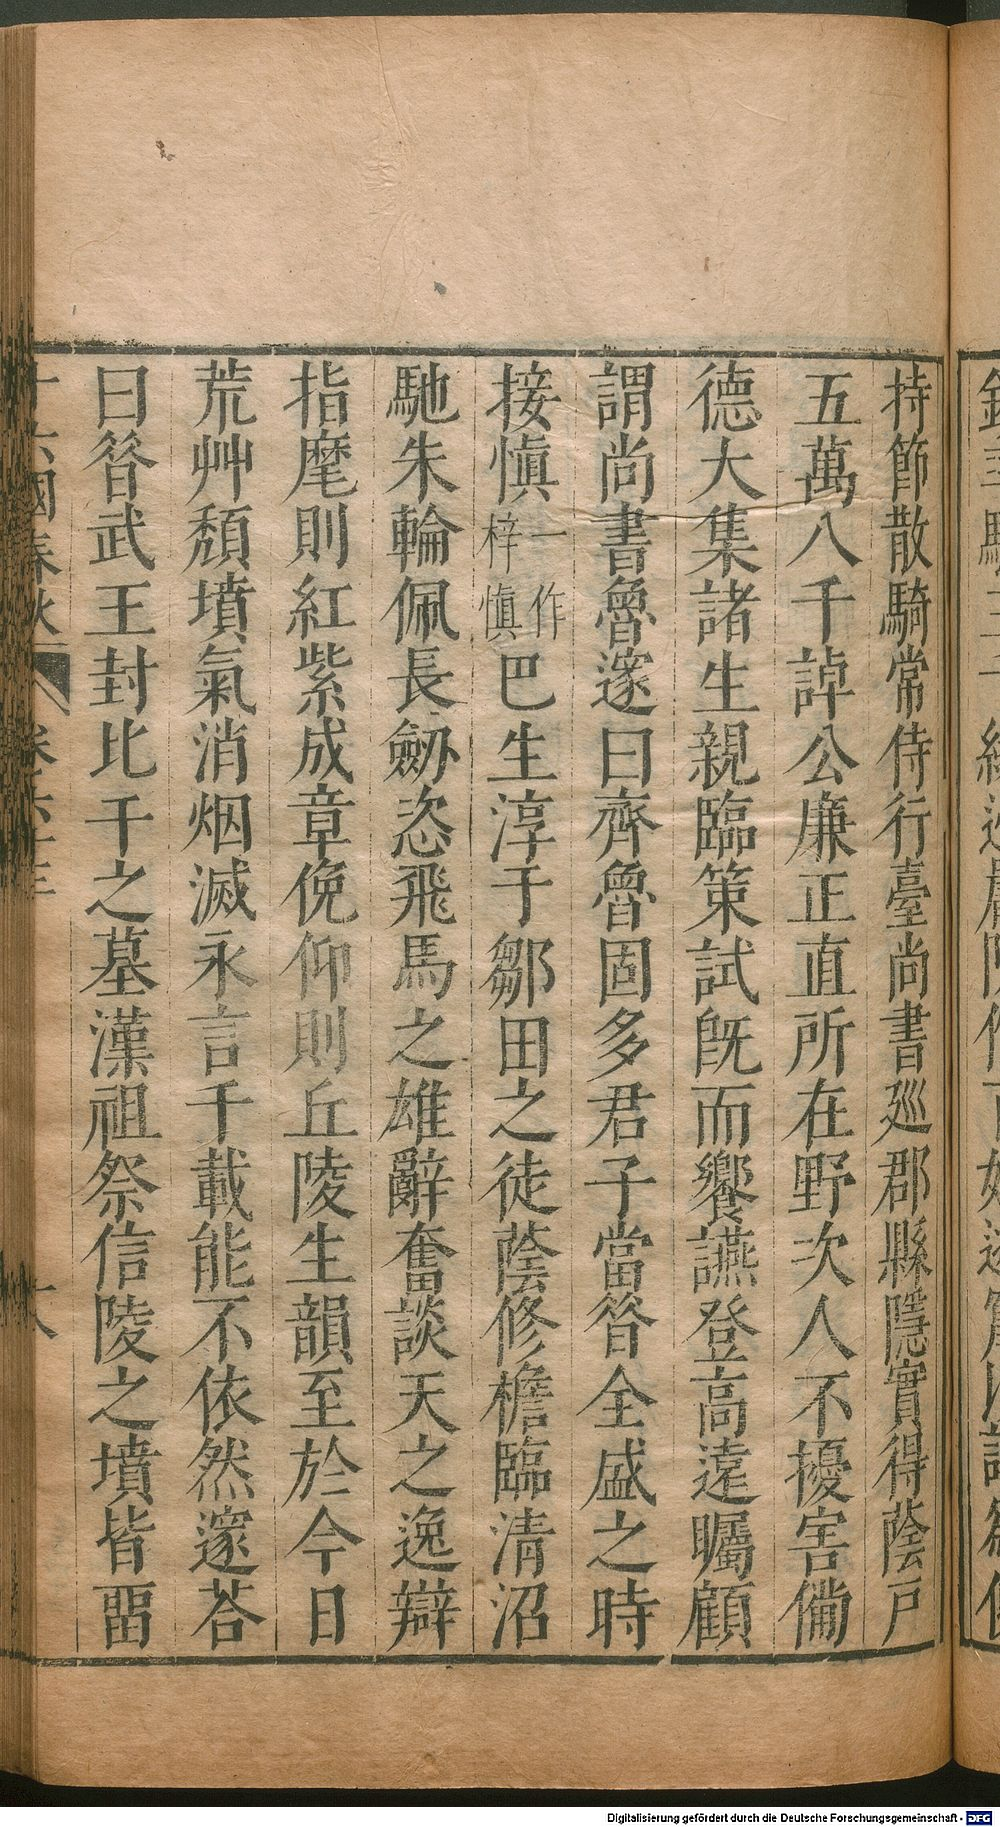 持節散騎常侍行臺尚書廵郡縣隱實得蔭戶
五萬八千諱公廉正直所在野次人不擾害僃
德大集諸生親臨策試旣而饗讌登高遠矚顧
謂尚書魯邃曰齊魯固多君子當昝全盛之時
接愼一作梓愼巴生淳于鄒田之徒蔭修檐臨清沼
馳朱輪佩長劒恣飛馬之雄辭奮談天之逸辯
指麾則紅紫成章俛仰則丘陵生韻至於今日
荒艸頹墳氣消烟滅永言千載能不依然邃荅
曰昝武王封比干之墓漢祖祭信陵之墳皆畱
十六國春秋
Digitalisierung gefördert durch die Deutsche Forschungsgemeinschaft - DFG